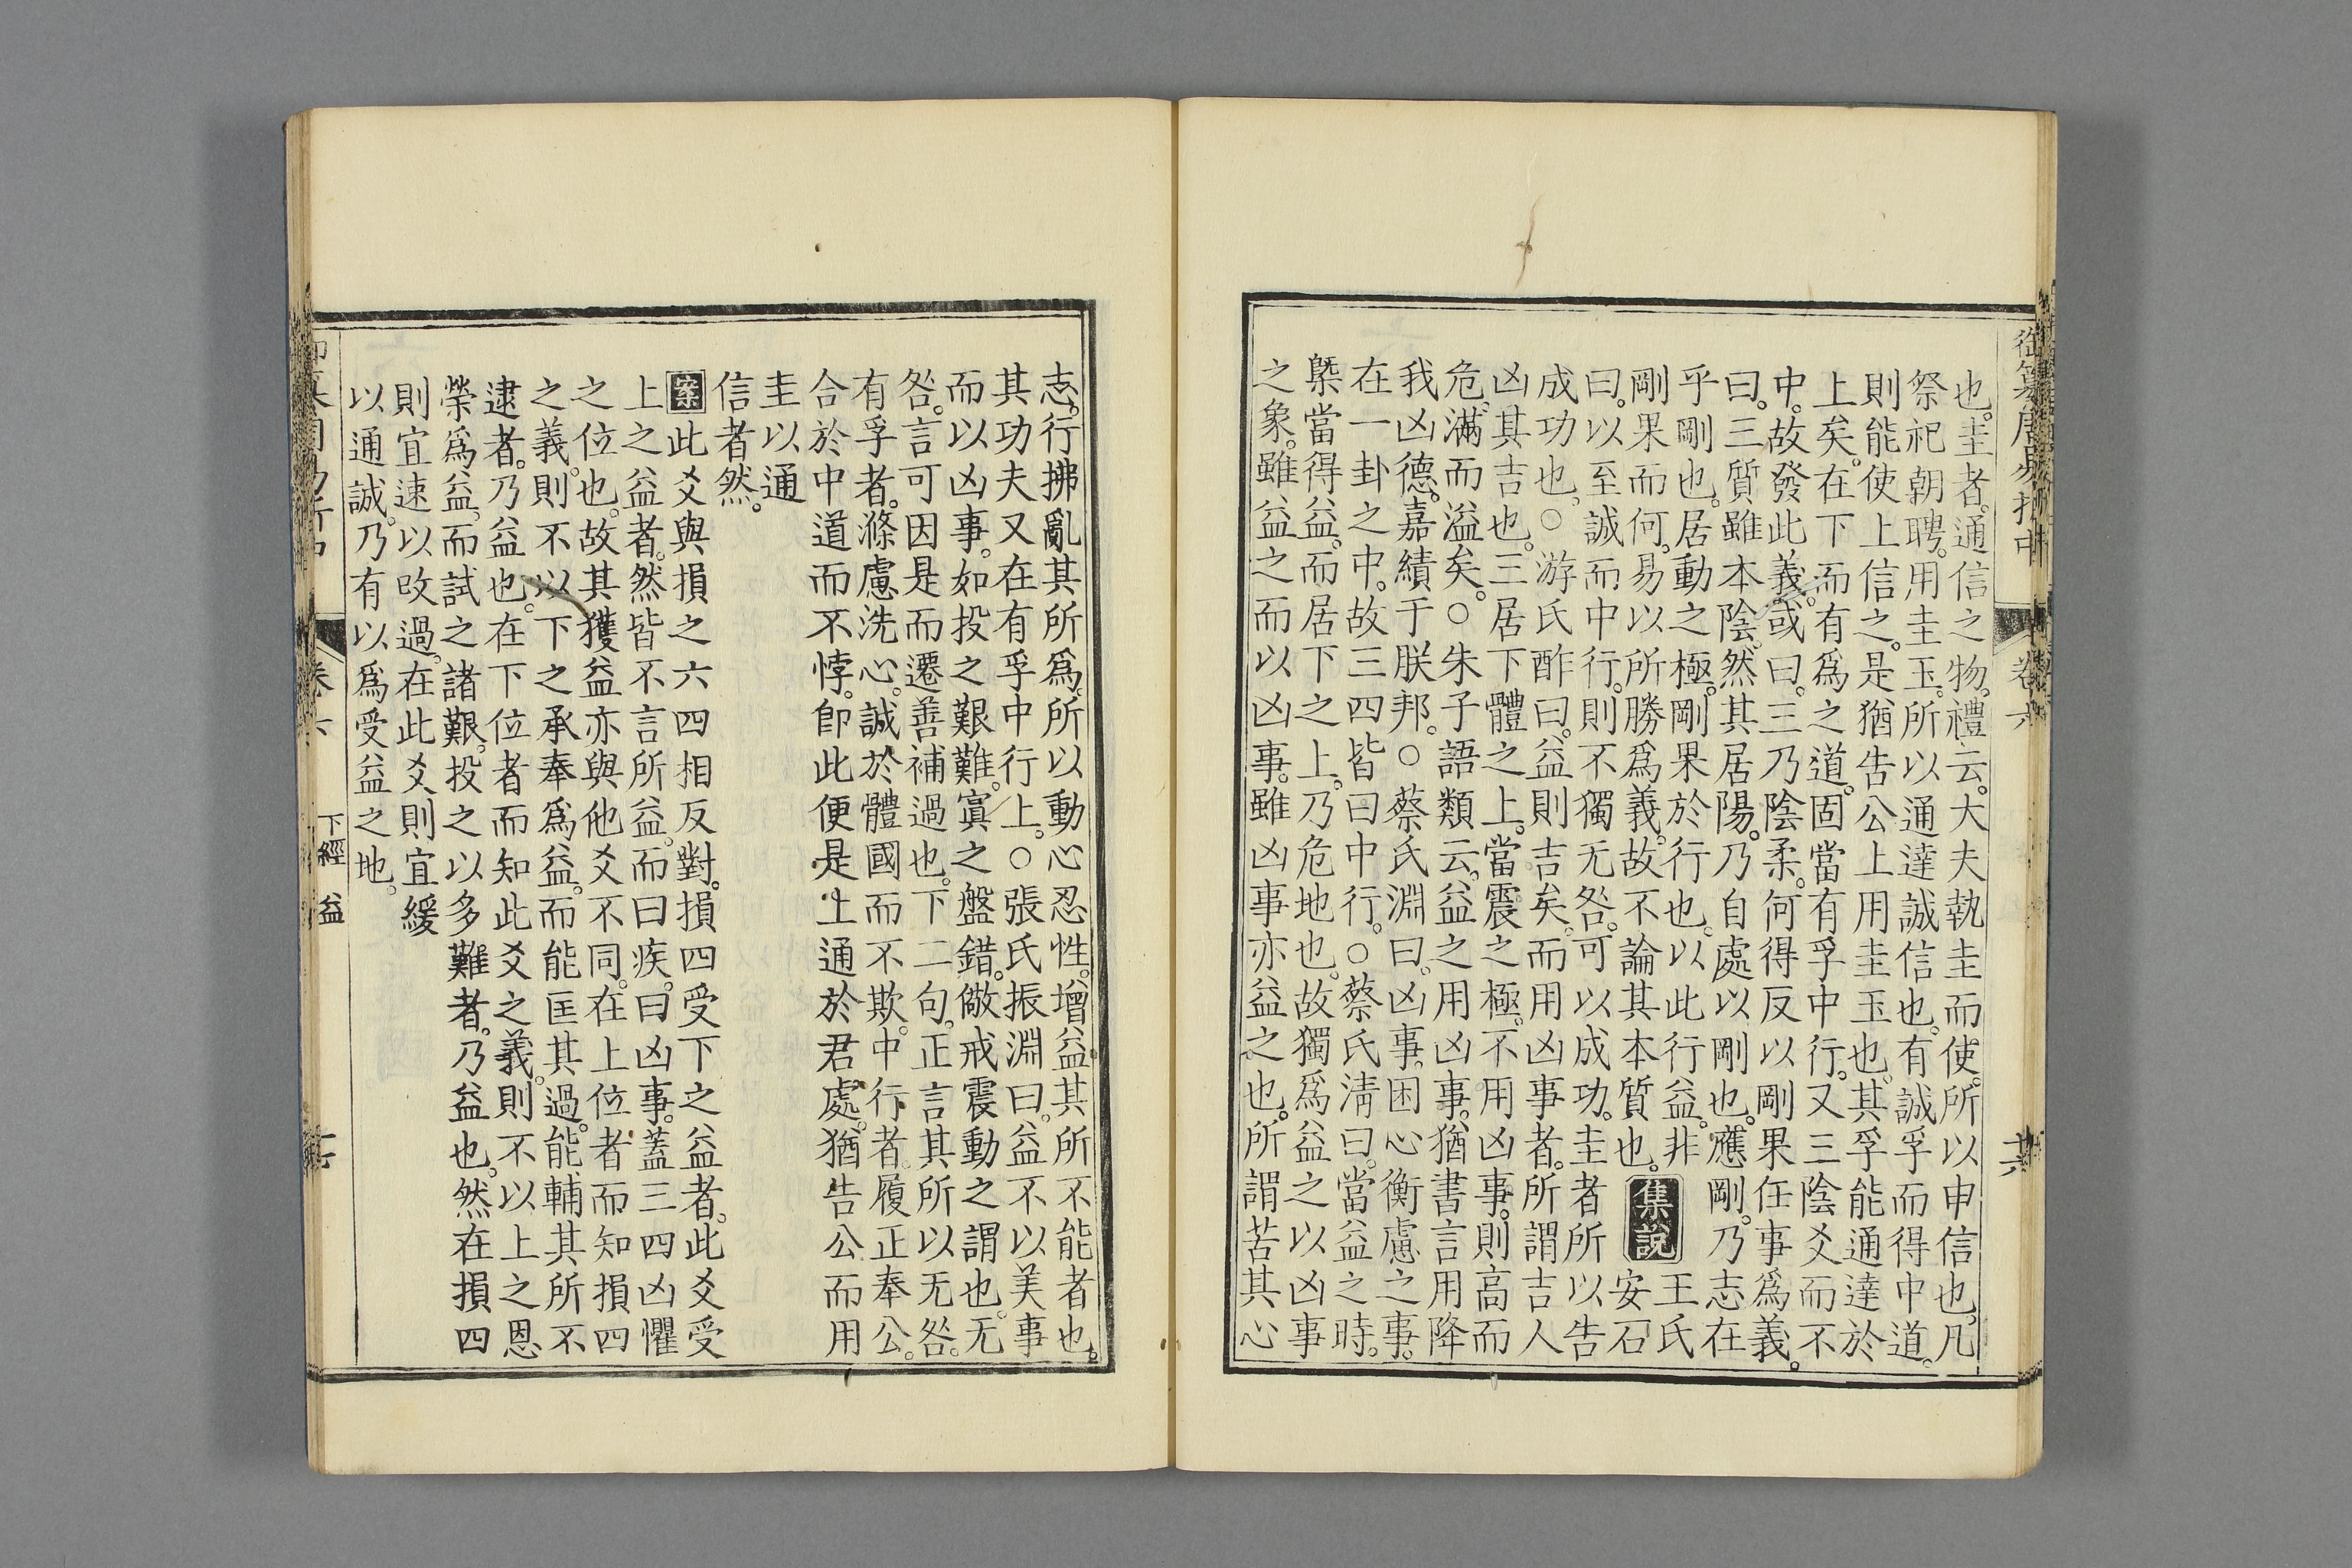 御纂周易折中 卷六
也。圭者。通信之物。禮云。大夫執圭而使。所以申信也。凡
祭祀朝聘。用圭玉。所以通達誠信也。有誠孚而得中道。
則能使上信之。是猶告公上用圭玉也。其孚能通達於
上矣。在下而有爲之道。固當有孚中行。又三陰爻而不
中。故發此義。或曰。三乃陰柔。何得反以剛果任事爲義。
曰。三質雖本陰。然其居陽。乃自處以剛也。應剛。乃志在
乎剛也。居動之極。剛果於行也。以此行益。非
剛果而何。易以所勝爲義。故不論其本質也。
集說
王氏
安石
曰。以至誠而中行。則不獨无咎。可以成功。圭者所以告
成功也。○游氏酢曰。益則吉矣。而用凶事者。所謂吉人
凶其吉也。三居下體之上。當震之極。不用凶事。則高而
危。滿而溢矣。○朱子語類云。益之用凶事。猶書言用降
我凶德。嘉績于朕邦。○蔡氏淵曰。凶事。困心衡慮之事。
在一卦之中。故三四皆曰中行。○蔡氏淸曰。當益之時。
槩當得益。而居下之上。乃危地也。故獨爲益之以凶事
之象。雖益之而以凶事。雖凶事亦益之也。所謂苦其心
志。行拂亂其所爲。所以動心忍性。增益其所不能者也。
其功夫又在有孚中行上。○張氏振淵曰。益不以美事
而以凶事。如投之艱難。寘之盤錯。儆戒震動之謂也。无
咎。言可因是而遷善補過也。下二句。正言其所以无咎。
有孚者。滌慮洗心。誠於體國而不欺。中行者。履正奉公。
合於中道而不悖。卽此便是上通於君處。猶告公而用
圭以通
信者然。
案此爻與損之六四相反對。損四受下之益者。此爻受
上之益者。然皆不言所益。而曰疾。曰凶事。蓋三四凶懼
之位也。故其獲益亦與他爻不同。在上位者而知損四
之義。則不以下之承奉爲益。而能匡其過。能輔其所不
逮者。乃益也。在下位者而知此爻之義。則不以上之恩
榮爲益。而試之諸艱。投之以多難者。乃益也。然在損四
則宜速以攺過。在此爻則宜緩
以通誠。乃有以爲受益之地。
卷六 下經 益